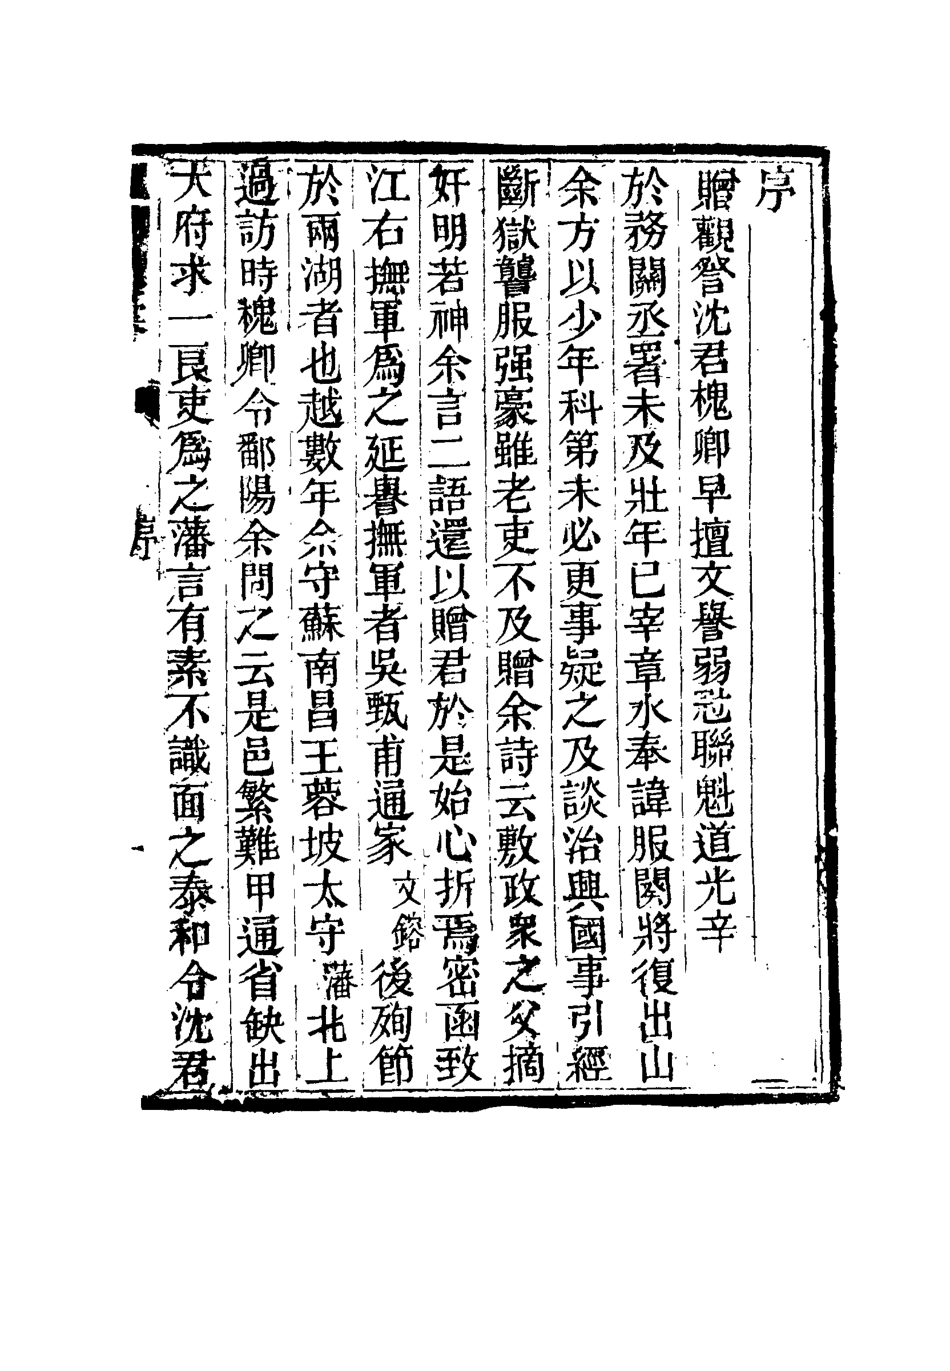 序
贈觀詧沈君槐卿早擅文譽弱冠聯魁道光辛
於務關丞署未及壯年已宰章水奉諱服闋將復出山
余方以少年科第未必更事疑之及談治興國事引經
斷獄讋服强豪雖老吏不及贈余詩云敷政衆之父摘
奸明若神余言二語還以贈君於是始心折焉密函致
江右撫軍爲之延譽撫軍者吳甄甫通家文鎔後殉節
於兩湖者也越數年余守蘇南昌王蓉坡太守藩北上
過訪時槐卿令鄱陽余問之云是邑繁難甲通省缺出
大府求一良吏爲之藩言有素不識面之泰和令沈君
序